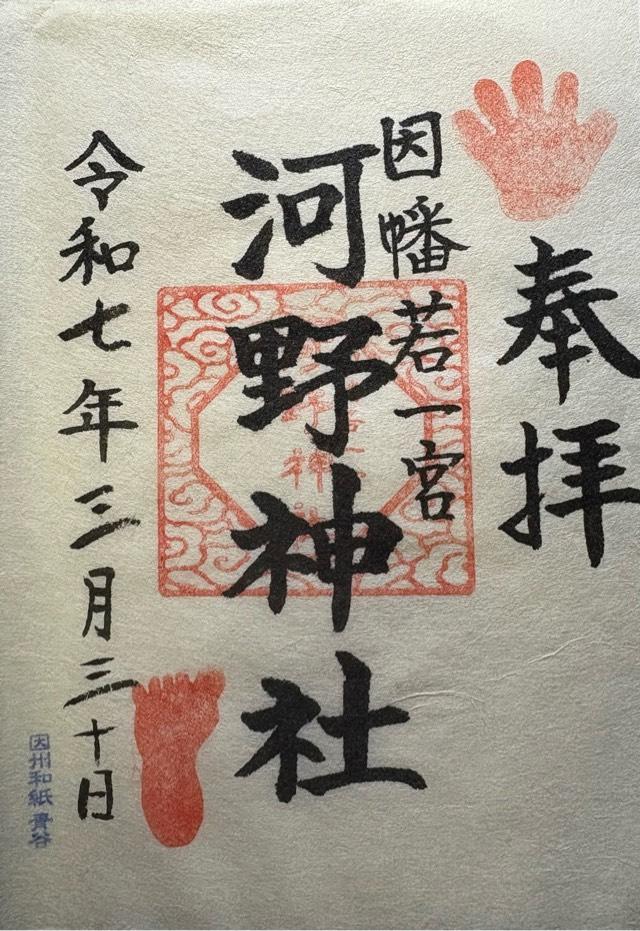 奉拝
因幡若一宮
河野神社
令和七年三月三十日
因州和紙 青谷